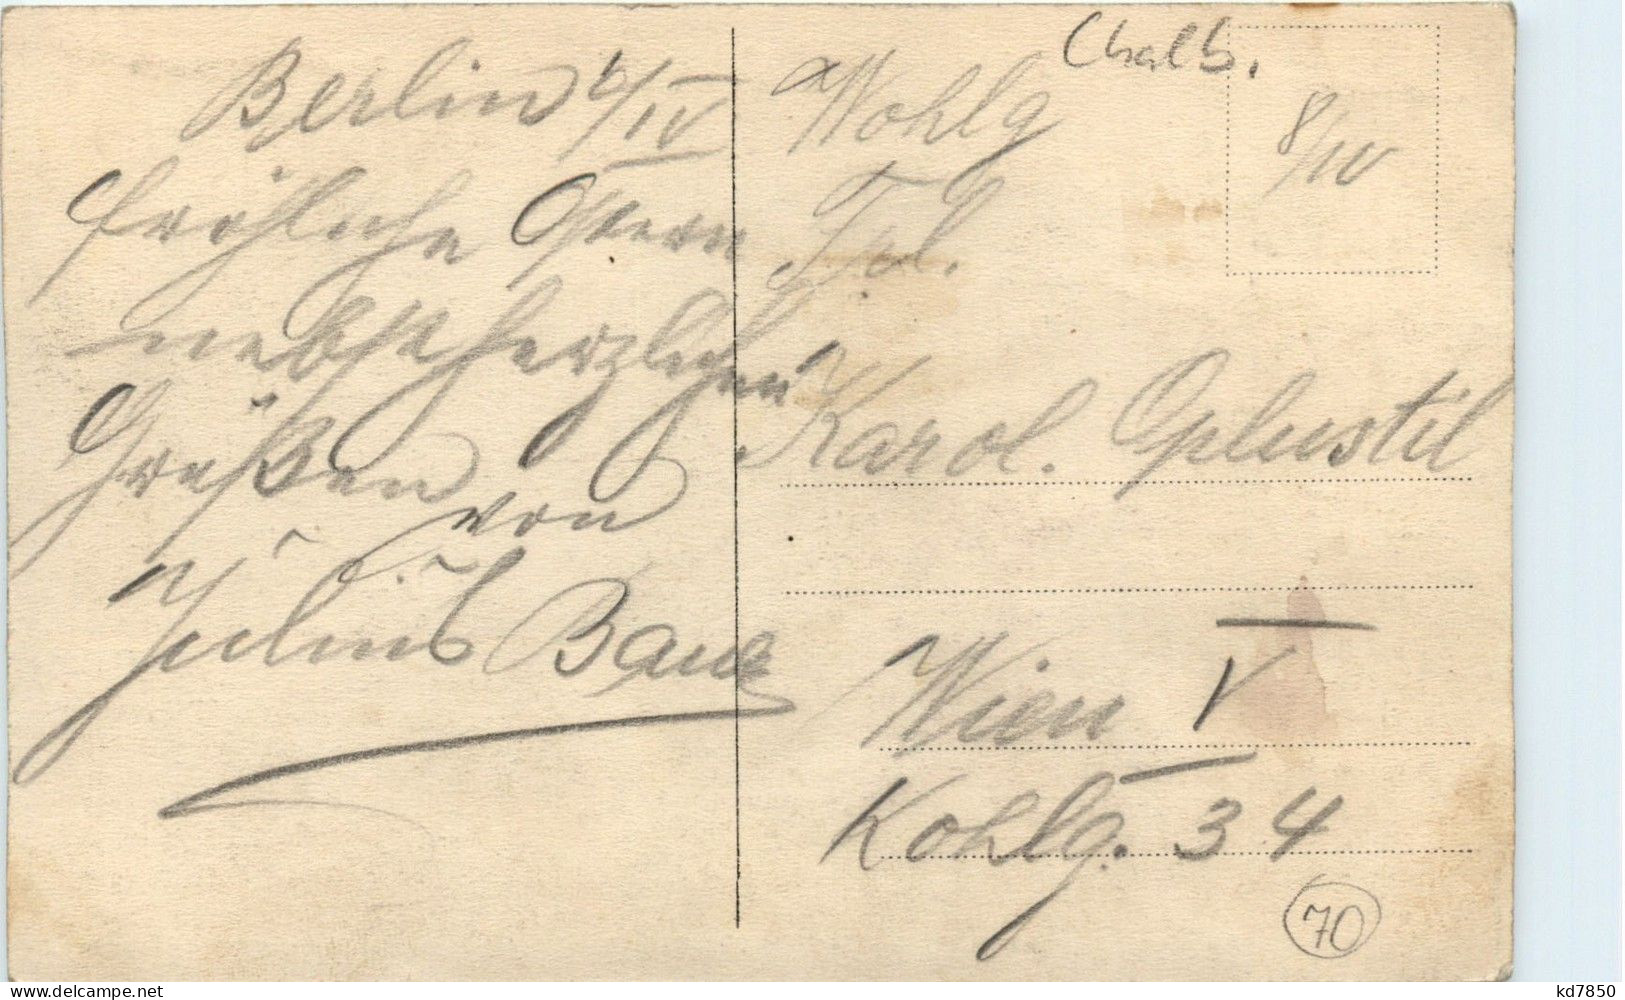 Berlin 6/IV
Fröhliche Ostern
nebst herzlichen
Grüßen von
Julius Baue
Chalb.
8/IV
Wohlg
Frl.
Karol. Oplustil
Wien V
Kohlg. 34
70
kd7850